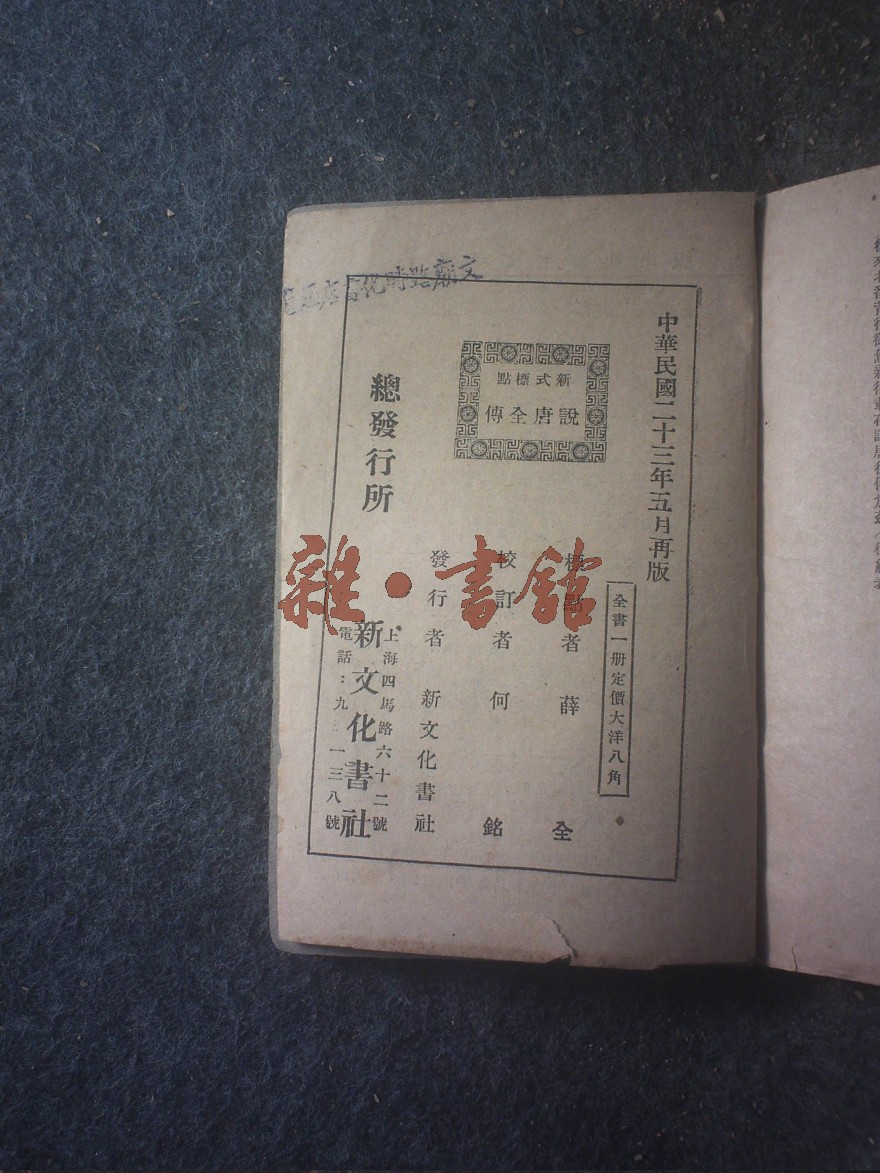 中華民國二十三年五月再版
全書一册定價大洋八角
新式標點
說唐全傳
標點者 薛全
校訂者 何銘
發行者 新文化書社
總發行所
上海四馬路六十二號
新文化書社
電話：九 一三八號
雜·書館